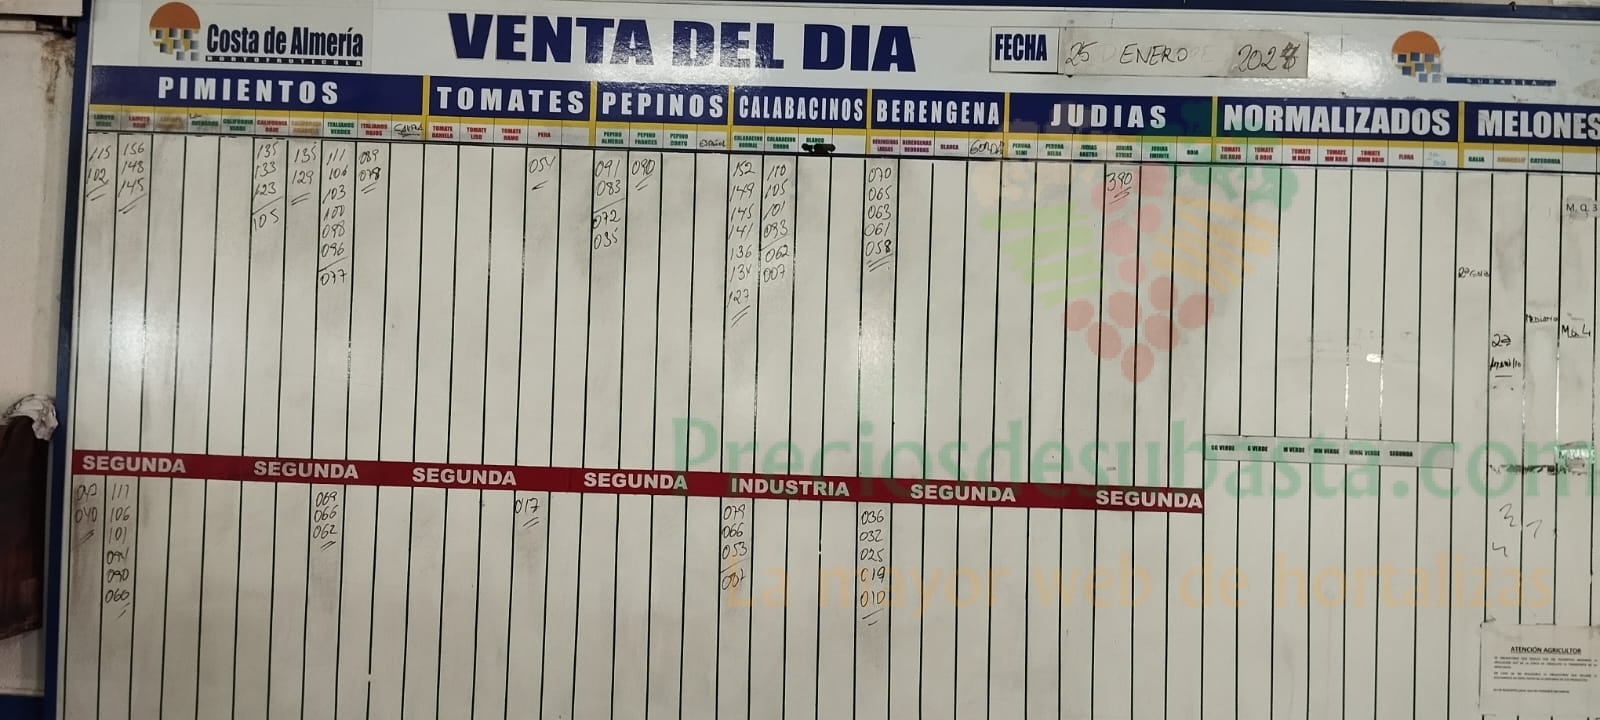 Costa de Almería
HORTOFRUTICOLA
VENTA DEL DIA
FECHA
25 D ENERO DE 2024
SUBASTA
PIMIENTOS
TOMATES
PEPINOS
CALABACINOS
BERENGENA
JUDIAS
NORMALIZADOS
MELONES
LAMUYO VERDE
LAMUYO ROJO
CALIFORNIA VERDE
CALIFORNIA ROJO
CALIFORNIA AMARILLO
ITALIANOS VERDES
ITALIANOS ROJOS
TOMATE DANIELA
TOMATE LISO
TOMATE RAMO
PERA
PEPINO ALMERIA
PEPINO FRANCES
PEPINO CORTO
ESPAÑOL
CALABACINO NORMAL
CALABACINO GORDO
BLANCO
BERENGENA LARGAS
BERENGENAS REDONDAS
BLANCA
GORDA
PERONA SEMI
PERONA ROJA
JUDIAS RASTRA
JUDIAS STRIKE
JUDIAS EMERITE
ROJA
TOMATE GG ROJO
TOMATE G ROJO
TOMATE M ROJO
TOMATE MM ROJO
TOMATE MMM ROJO
FLORA
GALIA
AMARILLO
CATEGORIA
115
102
156
148
145
135
133
123
105
135
129
111
106
103
100
098
096
077
089
078
054
091
083
072
035
090
152
149
145
141
136
134
127
110
105
101
093
062
007
070
065
063
061
058
390
M. Q. 3
GG VERDE
G VERDE
M VERDE
MM VERDE
MMM VERDE
SEGUNDA
SEGUNDA
SEGUNDA
SEGUNDA
SEGUNDA
INDUSTRIA
SEGUNDA
SEGUNDA
040
111
106
101
094
090
066
069
066
062
017
079
066
053
036
032
025
019
010
Preciosdesubasta.com
La mayor web de hortalizas
ATENCIÓN AGRICULTOR